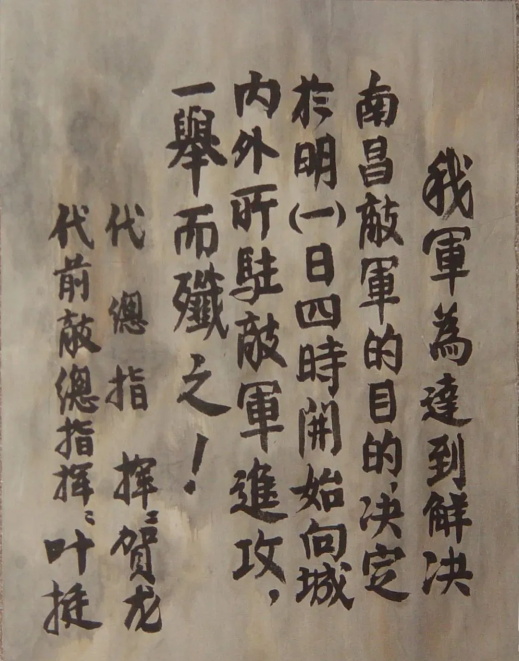 我軍為達到解决
南昌敵軍的目的,决定
於明(一)日四時開始向城
内外所駐敵軍進攻,
一舉而殲之!
代總指揮:賀龙
代前敵總指揮:叶挺